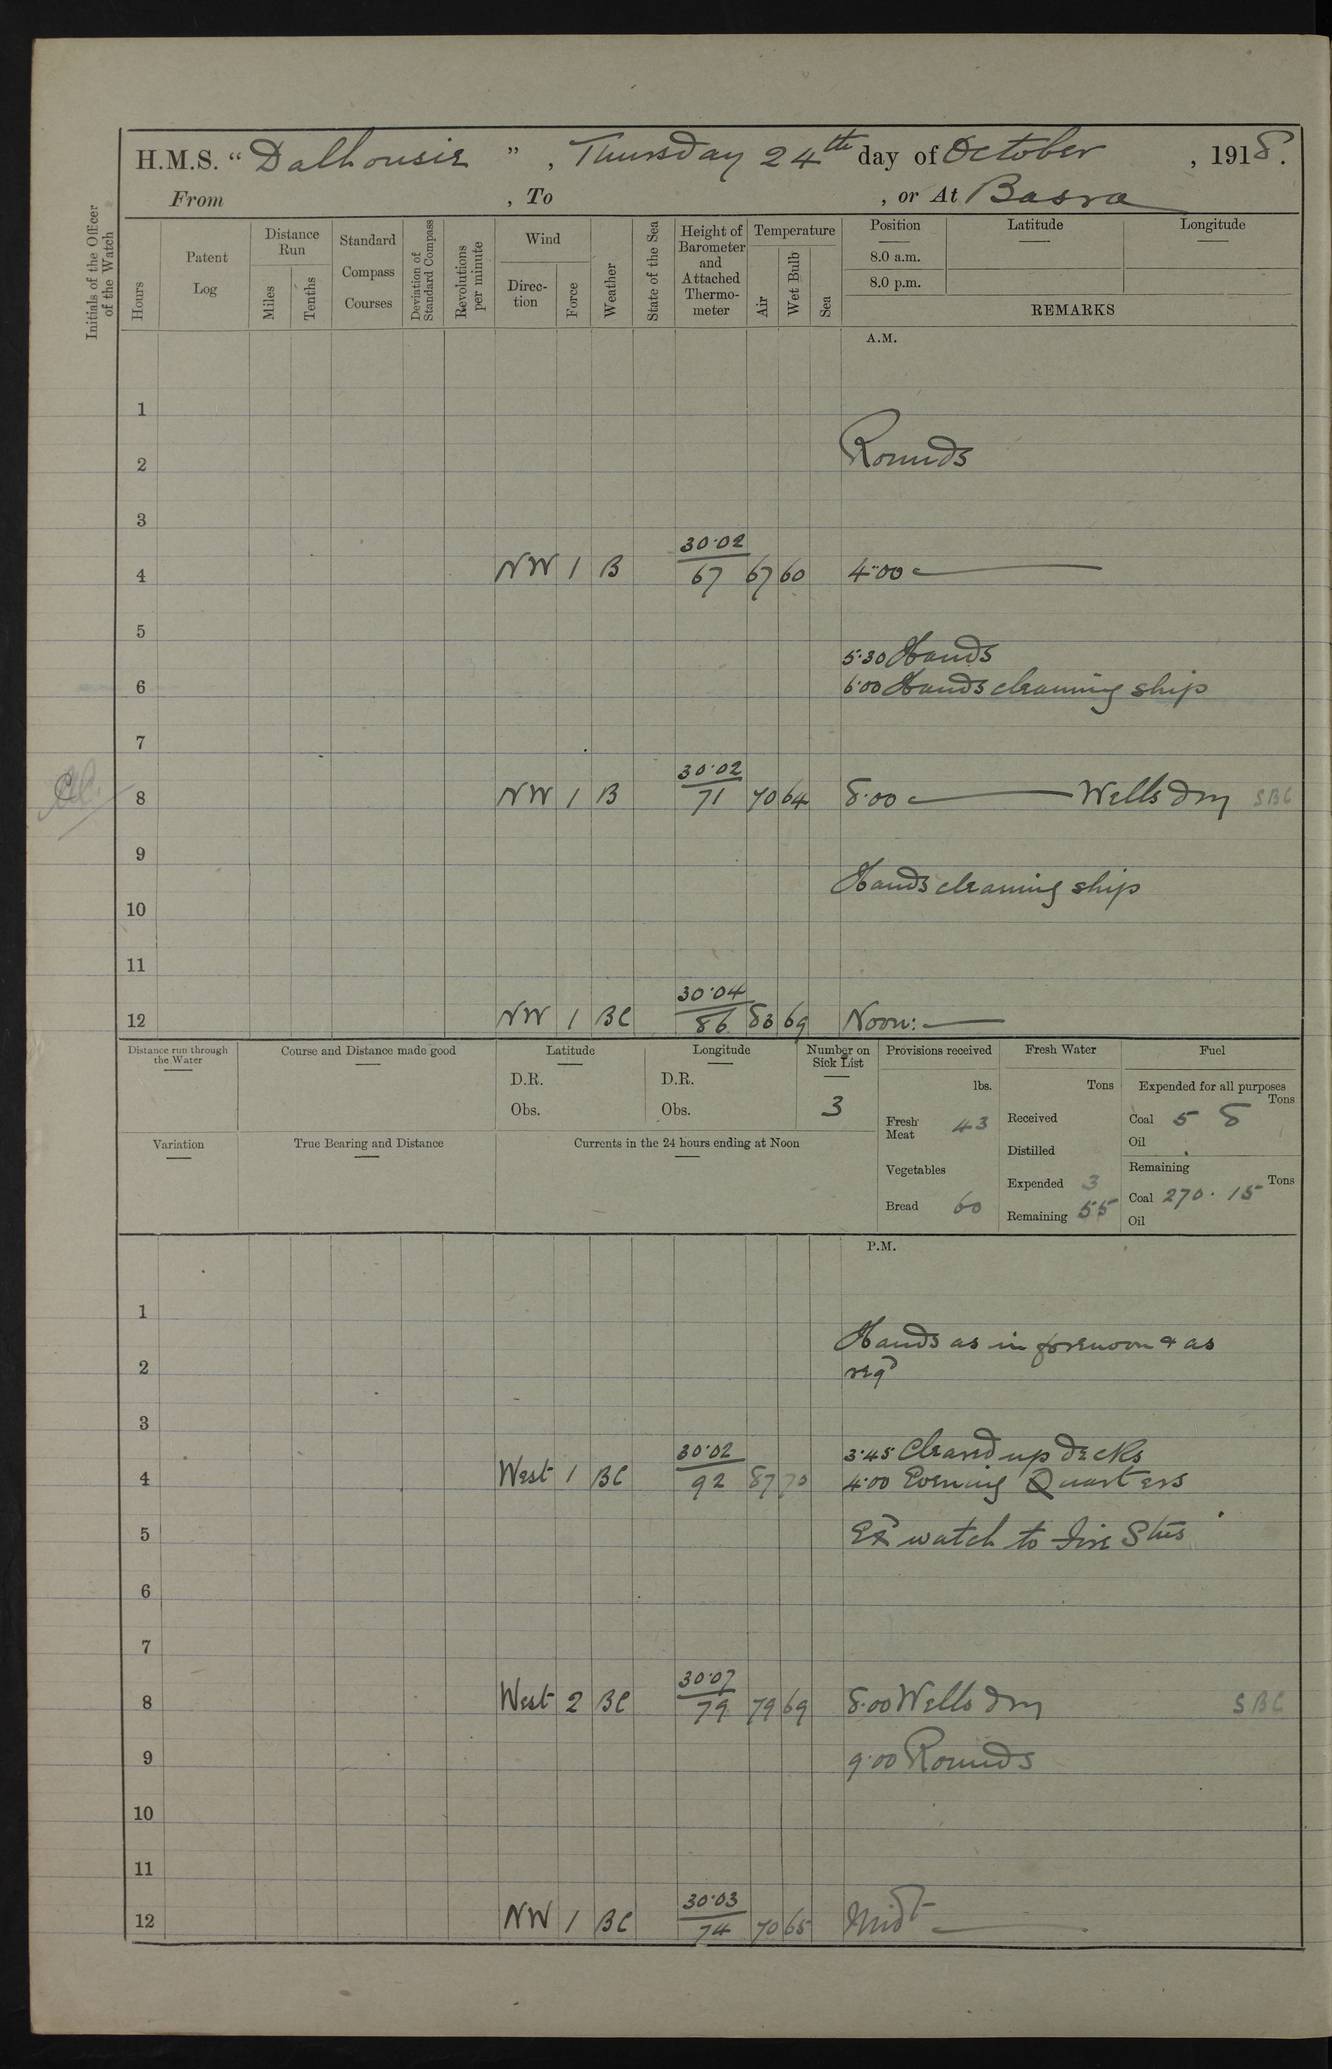 H.M.S. “Dalhousie”, Thursday 24th day of October, 1918.
From , To , or At Basra
Initials of the Officer of the Watch
Hours
Patent Log
Distance Run
Miles
Tenths
Standard Compass Courses
Deviation of Standard Compass
Revolutions per minute
Wind
Direction
Force
Weather
State of the Sea
Height of Barometer and Attached Thermometer
Temperature
Air
Wet Bulb
Sea
Position Latitude Longitude
8.0 a.m.
8.0 p.m.
REMARKS
A.M.
1
2 Rounds
3
4 NW 1 B 30·02 67 67 60 4·00
5
5·30 Hands
6 6·00 Hands cleaning ship
7
8 NW 1 B 30·02 71 70 64 8·00 Wells dry SBC
9
Hands cleaning ship
10
11
12 NW 1 BC 30·04 86 83 69 Noon:
Distance run through the Water
Course and Distance made good
Latitude
D.R.
Obs.
Longitude
D.R.
Obs.
Number on Sick List
3
Provisions received
lbs.
Fresh Meat 43
Vegetables
Bread 60
Fresh Water
Tons
Received
Distilled
Expended 3
Remaining 55
Fuel
Expended for all purposes
Tons
Coal 5 8
Oil
Remaining
Tons
Coal 270·15
Oil
Variation
True Bearing and Distance
Currents in the 24 hours ending at Noon
P.M.
1
Hands as in forenoon & as
2 reqd
3
3·45 Cleared up decks
4 West 1 BC 30·02 92 87 70 4·00 Evening Quarters
5 Exd watch to Fire Stns
6
7
8 West 2 BC 30·07 79 79 69 8·00 Wells dry SBC
9 9·00 Rounds
10
11
12 NW 1 BC 30·03 74 70 65 Midt